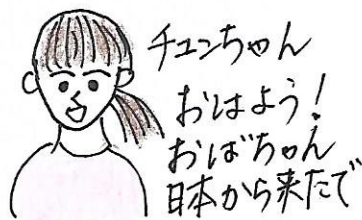 チュンちゃん
おはよう！
おばちゃん
日本から来たで